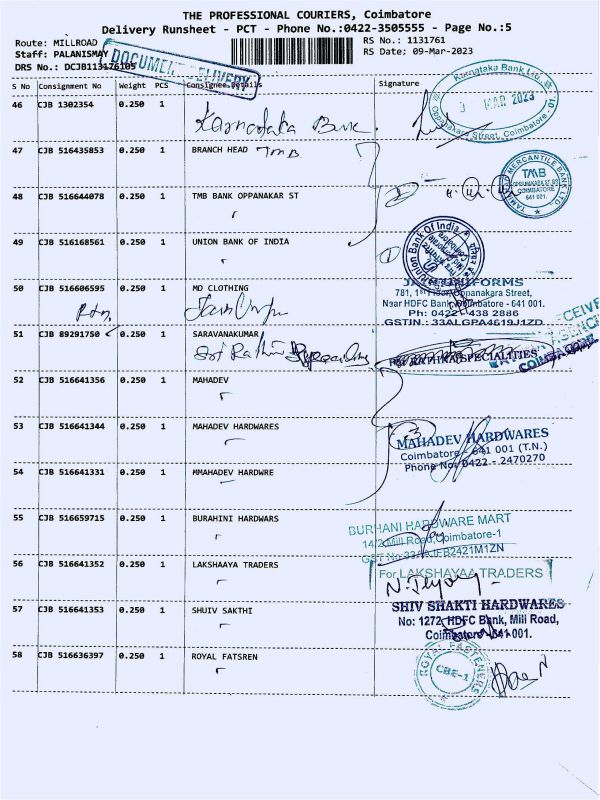 THE PROFESSIONAL COURIERS, Coimbatore
Delivery Runsheet - PCT - Phone No.:0422-3505555 - Page No.:5
Route: MILLROAD
RS No.: 1131761
Staff: PALANISMAY
RS Date: 09-Mar-2023
DRS No.: DCJB113176105
DOCUMENT DELIVERY
S No Consignment No Weight PCS Consignee Details Signature
46 CJB 1302354 0.250 1
Karnataka Bank
Karnataka Bank Ltd.,
3 MAR 2023
Oppanakara Street, Coimbatore - 01
47 CJB 516435853 0.250 1 BRANCH HEAD TMB
TAMILNAD MERCANTILE BANK LTD
TMB
COIMBATORE
641 001.
48 CJB 516644078 0.250 1 TMB BANK OPPANAKAR ST
2
49 CJB 516168561 0.250 1 UNION BANK OF INDIA
1
Union Bank Of India
50 CJB 516606595 0.250 1 MD CLOTHING
UNIFORMS
781, 1st Floor, Oppanakara Street,
Near HDFC Bank, Coimbatore - 641 001.
Ph: 0422 - 438 2886
GSTIN : 33ALGPA4619J1ZD
51 CJB 89291750 0.250 1 SARAVANAKUMAR
Sri Rathna
For RATHNA SPECIALITIES
RECEIVED
COIMBATORE
52 CJB 516641356 0.250 1 MAHADEV
53 CJB 516641344 0.250 1 MAHADEV HARDWARES
3
MAHADEV HARDWARES
Coimbatore - 641 001 (T.N.)
Phone No: 0422 - 2470270
54 CJB 516641331 0.250 1 MMAHADEV HARDWRE
55 CJB 516659715 0.250 1 BURAHINI HARDWARS
BURHANI HARDWARE MART
14/2 Mill Road, Coimbatore-1
56 CJB 516641352 0.250 1 LAKSHAAYA TRADERS
For LAKSHAYAA TRADERS
57 CJB 516641353 0.250 1 SHUIV SAKTHI
SHIV SHAKTI HARDWARES
No: 1272, HDFC Bank, Mill Road,
Coimbatore - 641 001.
58 CJB 516636397 0.250 1 ROYAL FATSREN
ROYAL FASTENERS
CBE-1